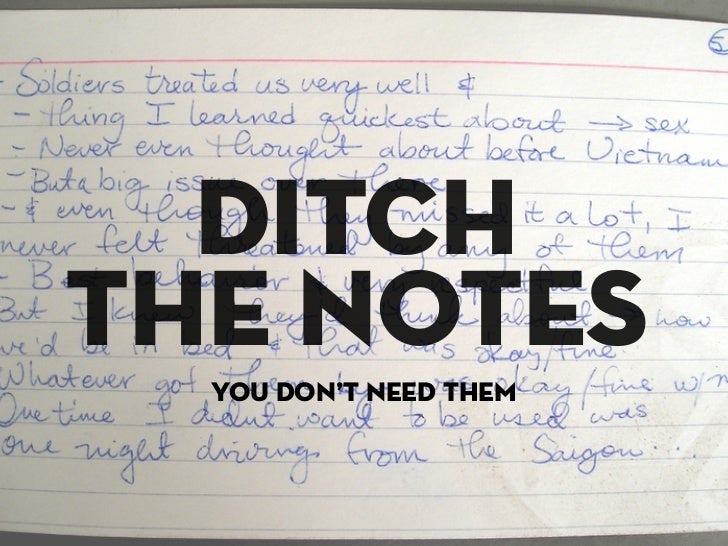 5
- Soldiers treated us very well &
- thing I learned quickest about → sex
- Never even thought about before Vietnam
- But a big issue over there
- & even though they missed it a lot, I
never felt threatened by any of them
- Best behavior & very respectful
But I knew they'd think about → how
we'd be in bed & that was okay/fine
Whatever got them by was okay/fine w/m
One time I didnt want to be used was
one night driving from the Saigon....
DITCH
THE NOTES
YOU DON'T NEED THEM